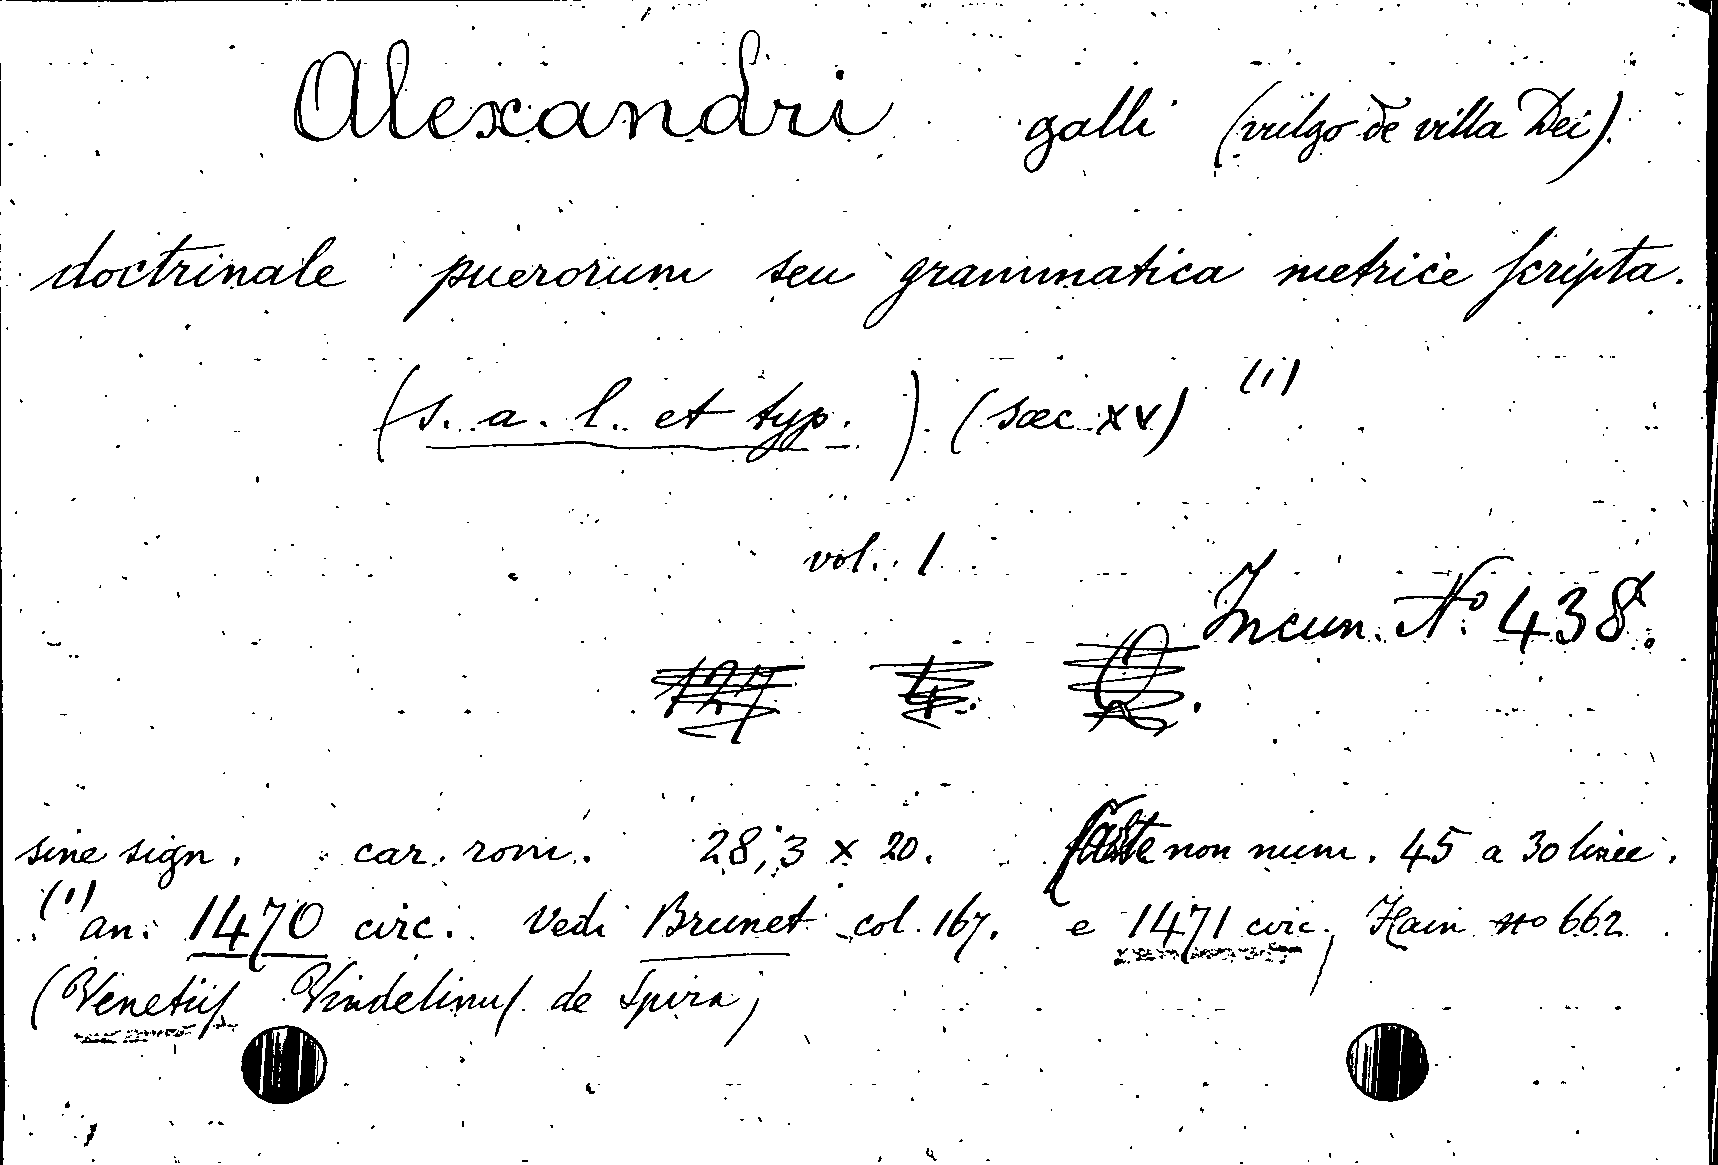 Alexandri galli (vulgo de villa Dei).
doctrinale puerorum seu grammatica metrice scripta.
(s. a. l. et typ.) (sæc XV) (1)
vol. 1
Incun. No 438.
127 4. Q.
sine sign. car. rom. 28,3 x 20. carte non num. 45 a 30 linee.
(1) an. 1470 circ. Vedi Brunet col. 167. e 1471 circ, Hain no 662
(Venetiis Vindelinus de Spira,